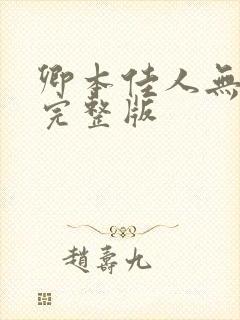 卿本佳人無
完整版
趙壽九